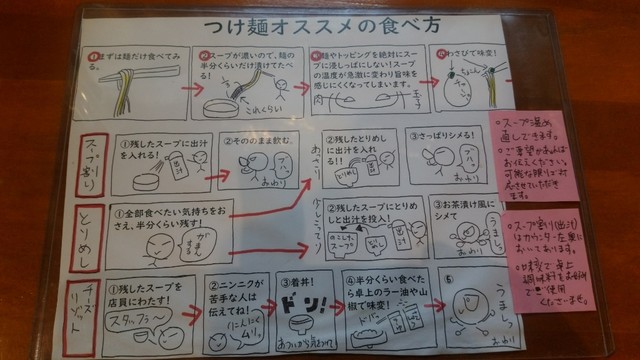 つけ麺オススメの食べ方
まずは麺だけ食べてみ
る。
スープが濃いので、麺の
半分くらいだけ漬けてたべ
る!
これくらい
麺やトッピングを絶対にスー
プに浸しっぱにしない!スープ
の温度が急激に変わり旨味を
感じにくくなってしまいます。
肉
玉子
わさびで味変!
ちょん
スープ割り
①残したスープに出汁
を入れる!
出汁
②そのまま飲む。
プハッ
おわり
あっさり
②残したとりめし
に出汁を入れ
る!!
とりめし
出汁
③さっぱりシメる!
プハッ
おわり
とりめし
①全部食べたい気持ちをお
さえ、半分くらい残す!
がまん
する
少しこってり
②残したスープにとりめ
しと出汁を投入!
のこした
スープ
出汁
③お茶漬け風に
シメて
うましっ
おわり
チーズ
リゾット
①残したスープを
店員にわたす!
スタッフ〜
②ニンニクが
苦手な人は
伝えてね!
にんにく
ムリッ
③着丼!
ドン!
あついから気をつけて
④半分くらい食べた
ら卓上のラー油や山
椒で味変!
ドバッ
⑤
うましっ
おわり
○スープ温め
直しできます。
○ご希望があれば
お伝えください。
可能な限りで対
応させていただき
ます。
○スープ割り(出汁)
はカウンター左奥に
おいてあります。
○味変で卓上
調味料をお好み
で使用
くださいませ。